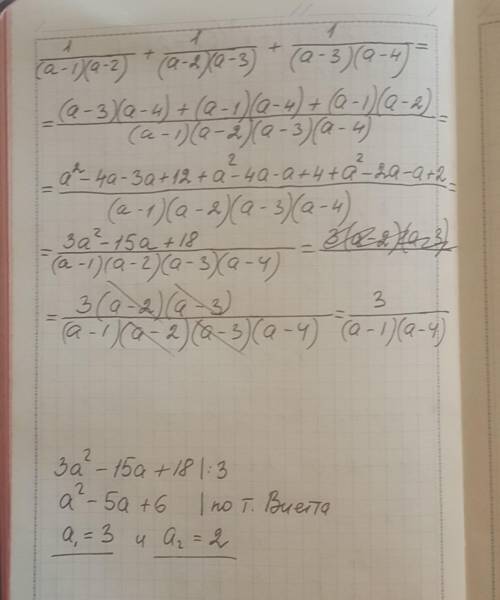 1/((a-1)(a-2)) + 1/((a-2)(a-3)) + 1/((a-3)(a-4)) =
= ((a-3)(a-4) + (a-1)(a-4) + (a-1)(a-2))/((a-1)(a-2)(a-3)(a-4)) =
= (a²-4a-3a+12+a²-4a-a+4+a²-2a-a+2)/((a-1)(a-2)(a-3)(a-4)) =
= (3a²-15a+18)/((a-1)(a-2)(a-3)(a-4)) = 3(a-2)(a-3)
= 3(a-2)(a-3)/((a-1)(a-2)(a-3)(a-4)) = 3/((a-1)(a-4))
3a²-15a+18 |:3
a²-5a+6 | по т. Виета
a₁=3 и a₂=2